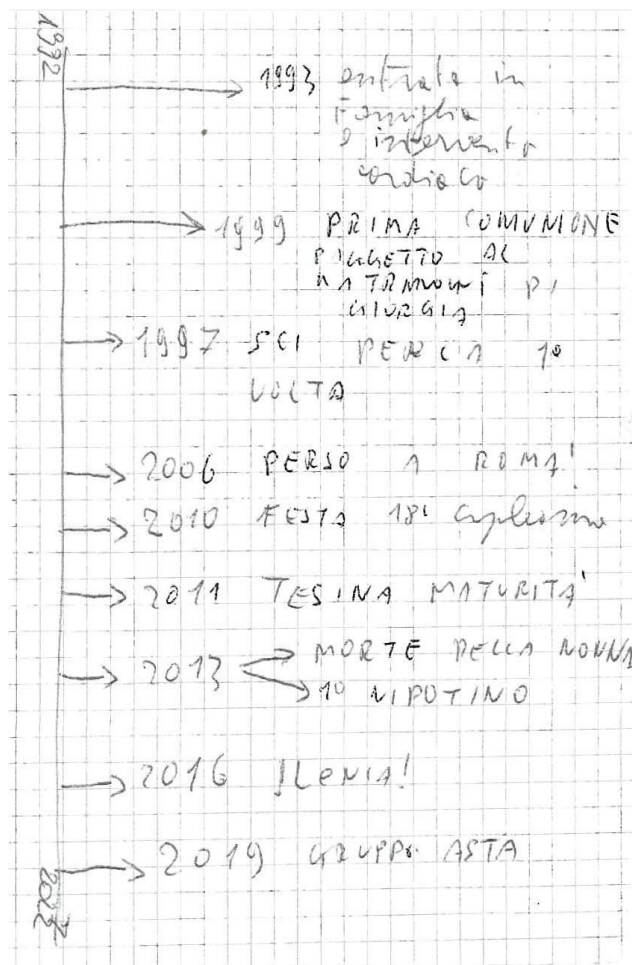 1992
1993 entrata in
famiglia
e intervento
cardiaco
1999 PRIMA COMUNIONE
PAGGETTO AL
MATRIMONI DI
GIORGIA
1997 SCI PER LA 1°
VOLTA
2006 PERSO A ROMA!
2010 FESTA 18i
2011 TESINA MATURITA'
2013 MORTE DELLA NONNA
1° NIPOTINO
2016 ILENIA!
2019 GRUPPO ASTA